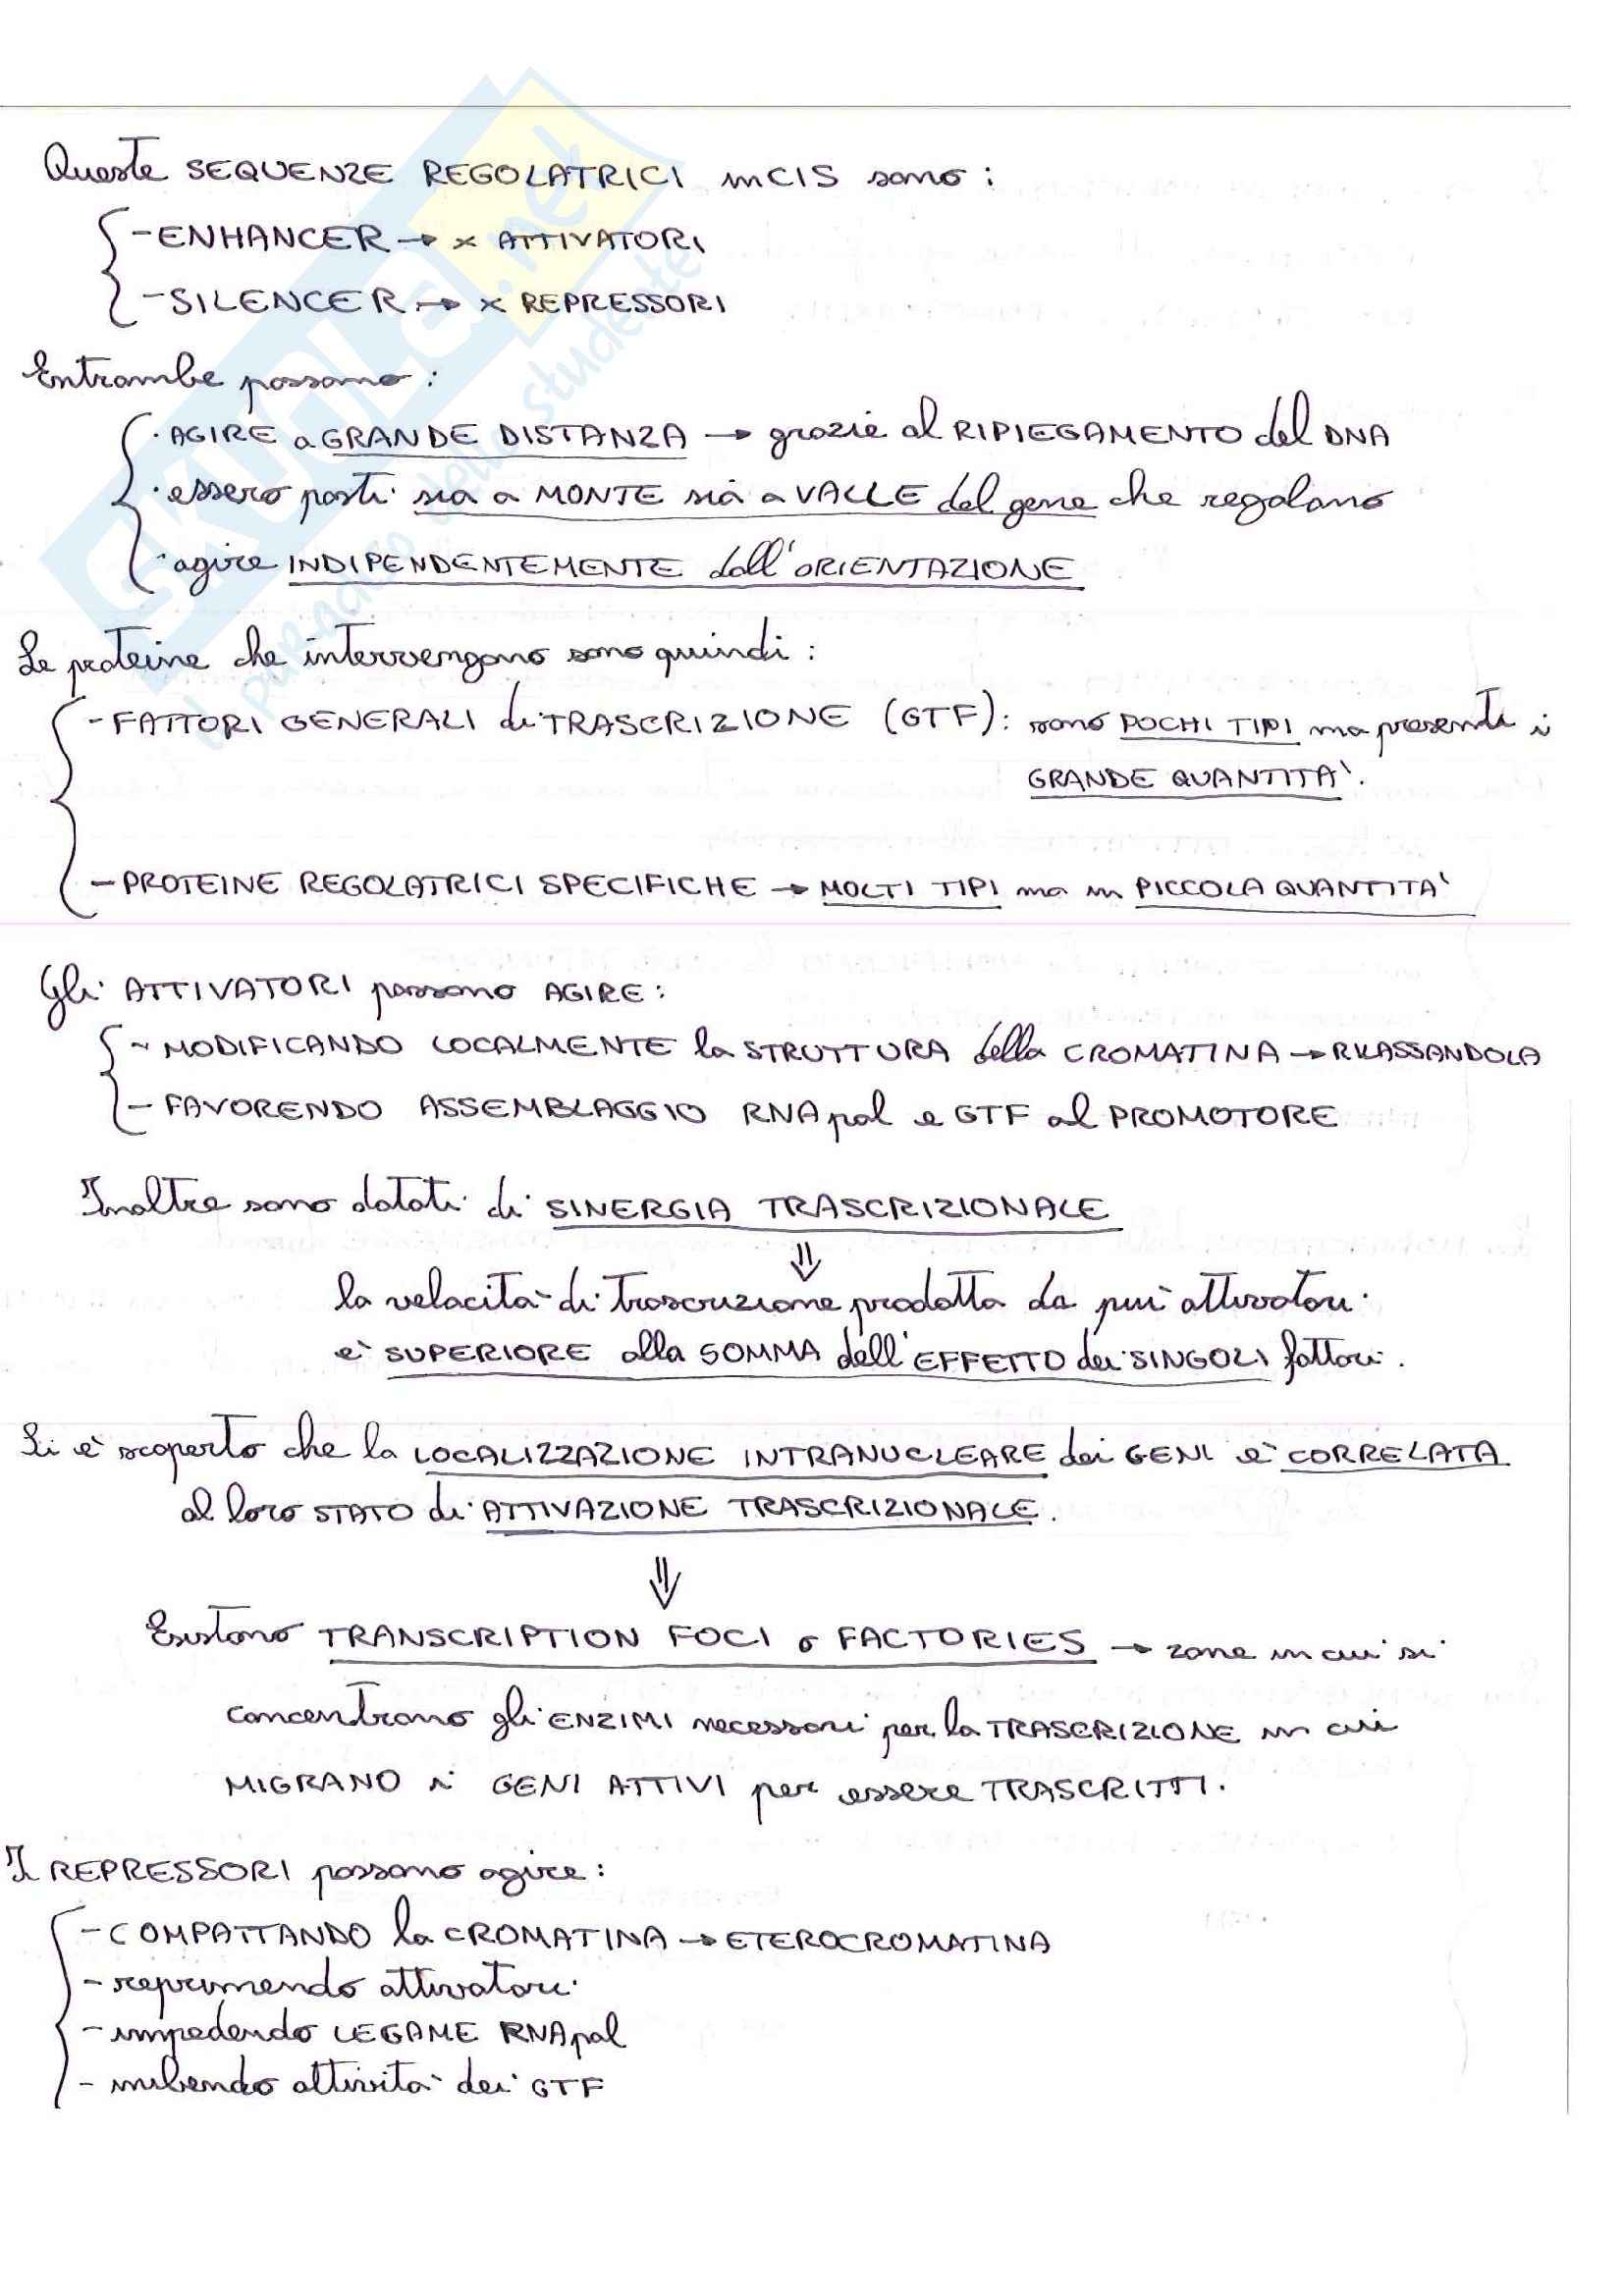 Queste SEQUENZE REGOLATRICI in CIS sono :
- ENHANCER → x ATTIVATORI
- SILENCER → x REPRESSORI
Entrambe possono :
· AGIRE a GRANDE DISTANZA → grazie al RIPIEGAMENTO del DNA
· essere posti sia a MONTE sia a VALLE del gene che regolano
· agire INDIPENDENTEMENTE dall'ORIENTAZIONE
Le proteine che intervengono sono quindi :
- FATTORI GENERALI di TRASCRIZIONE (GTF): sono POCHI TIPI ma presenti i
GRANDE QUANTITA'.
- PROTEINE REGOLATRICI SPECIFICHE → MOLTI TIPI ma in PICCOLA QUANTITA'
Gli ATTIVATORI possono AGIRE :
- MODIFICANDO LOCALMENTE la STRUTTURA della CROMATINA → RILASSANDOLA
- FAVORENDO ASSEMBLAGGIO RNA pol e GTF al PROMOTORE
Inoltre sono dotati di SINERGIA TRASCRIZIONALE
⇓
la velocità di trascrizione prodotta da più attivatori
è SUPERIORE alla SOMMA dell'EFFETTO dei SINGOLI fattori.
Si è scoperto che la LOCALIZZAZIONE INTRANUCLEARE dei GENI è CORRELATA
al loro STATO di ATTIVAZIONE TRASCRIZIONALE.
⇓
Esistono TRANSCRIPTION FOCI o FACTORIES → zone in cui si
concentrano gli ENZIMI necessari per la TRASCRIZIONE in cui
MIGRANO i GENI ATTIVI per essere TRASCRITTI.
I REPRESSORI possono agire :
- COMPATTANDO la CROMATINA → ETEROCROMATINA
- reprimendo attivatori
- impedendo LEGAME RNA pol
- inibendo attività dei GTF
SKUOLA.net
il paradiso dello studente